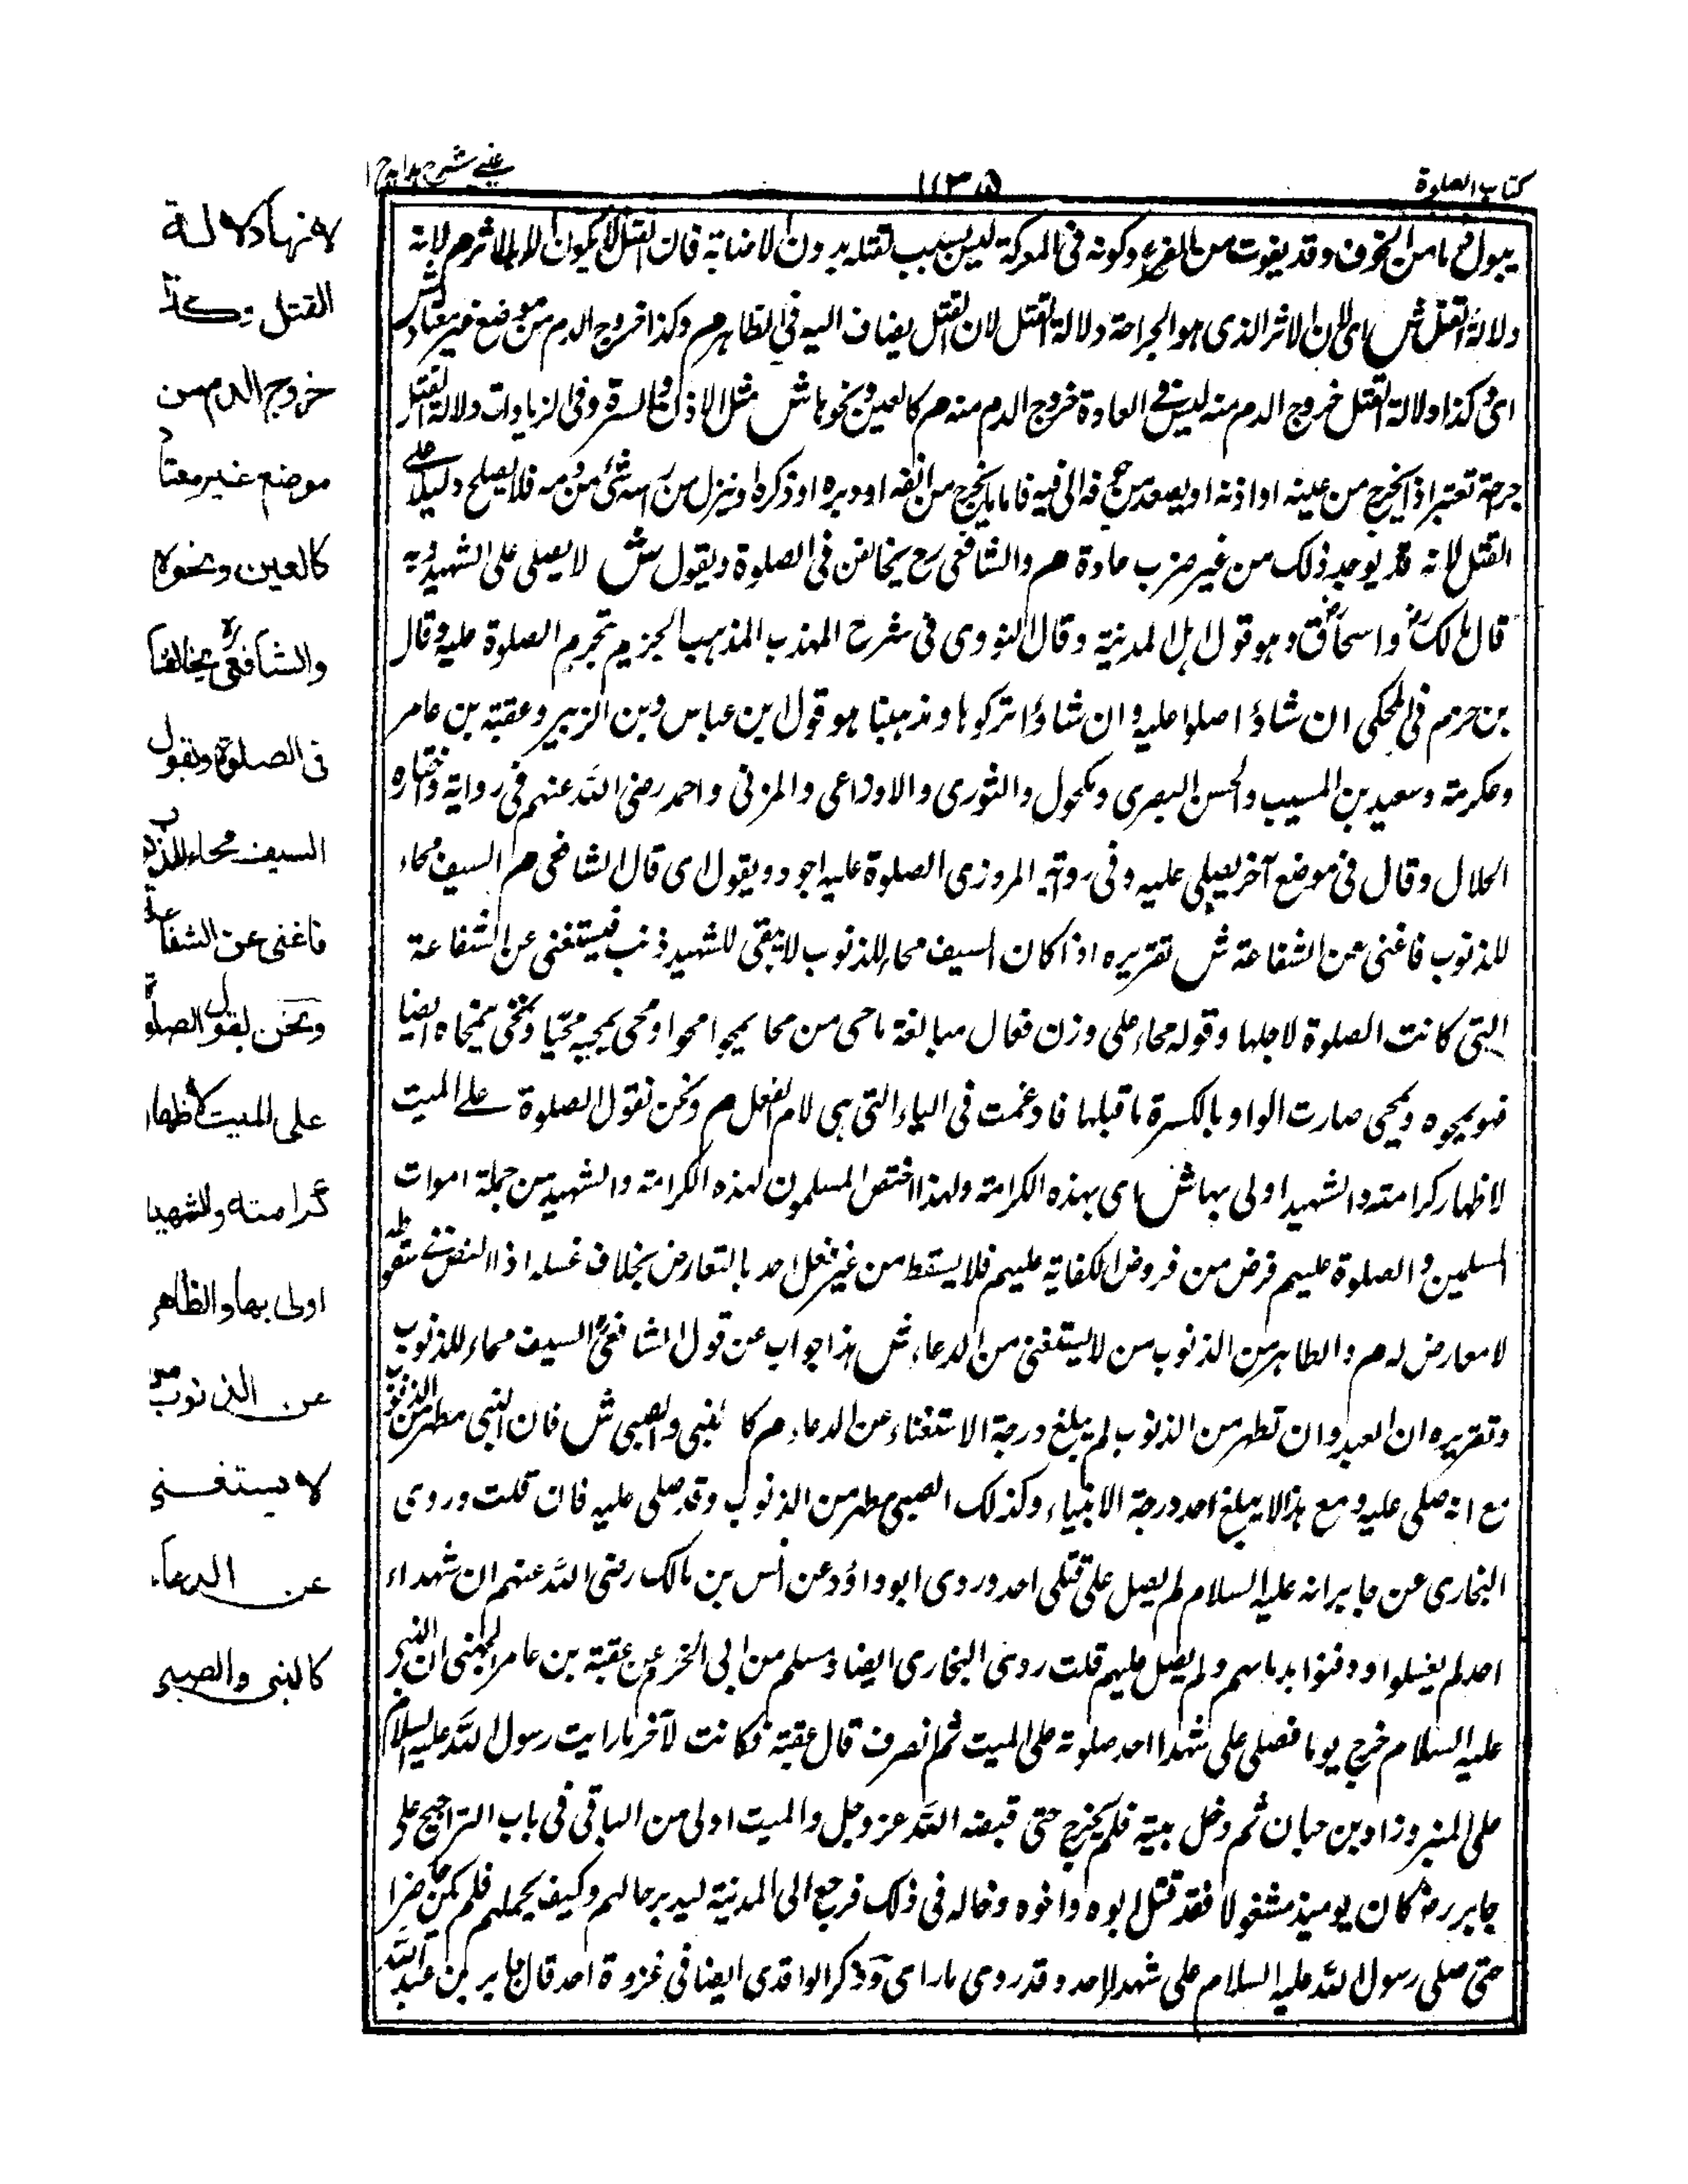 كتاب الصلوة
١١٣٥
عينى شرح هدايه ج ١
يبول دما من الخوف وقد يفوت من الفزع وكونه فى المعركة ليس بسبب لقتله بدون الاضافة فان القتل لا يكون الا بالاثر م لانه
دلالة القتل ش اى لان الاثر الذى هو الجراحة دلالة القتل لان القتل يضاف اليه فى الظاهر م وكذا خروج الدم من موضع غير معتاد ش
اى وكذا دلالة القتل خروج الدم منه ليس فى العادة خروج الدم منه م كالعين ونحوها ش مثل الاذن والسرة وفى الزيادات ودلالة القتل
جرحة تعتبر اذا يخرج من عينه او اذنه او يصعد من جوفه الى فيه فاما ما يخرج من انفه او دبره او ذكره او ينزل من رأسه شئ من فمه فلا يصلح دليلا على
القتل لانه قد يوجد ذلك من غير ضرب عادة م والشافعى رح يخالفنا فى الصلوة ويقول ش لا يصلى على الشهيد وبه
قال مالك رض واسحاق وهو قول اهل المدينة وقال النووى فى شرح المهذب المذهب الجزيم تحريم الصلوة عليه وقال
بن حزم فى المحكى ان شاؤا صلوا عليه وان شاؤا تركوها ومذهبنا هو قول ابن عباس وبن الزبير وعقبة بن عامر
وعكرمة وسعيد بن المسيب والحسن البصرى ومكحول والثورى والاوزاعى والمزنى واحمد رضى الله عنهم فى رواية واختاره
الخلال وقال فى موضع آخر يصلى عليه وفى رواية المروزى الصلوة عليه اجود ويقول اى قال الشافعى م السيف محاء
للذنوب فاغنى عن الشفاعة ش تقريره اذا كان السيف محاء للذنوب لا يبقى للشهيد ذنب فيستغنى عن الشفاعة
التى كانت الصلوة لاجلها وقوله محاء على وزن فعال مبالغة ماحى من محا يمحو امحوا ومحى يمحيه محيا ومحى يمحاه ايضا
فهو يمحوه ويمحى صارت الواو بالكسرة ما قبلها فادغمت فى الياء التى هى لام الفعل م ونحن نقول الصلوة على الميت
لاظهار كرامته والشهيد اولى بها ش اى بهذه الكرامة ولهذا اختص المسلمون لهذه الكرامة والشهيد من جملة اموات
المسلمين والصلوة عليهم فرض من فروض الكفاية عليهم فلا يسقط من غير فعل احد بالتعارض بخلاف غسله اذ النص فى سقوطه
لا معارض له م والطاهر من الذنوب من لا يستغنى من الدعاء ش هذا جواب عن قول الشافعى السيف محاء للذنوب
وتقريره ان العبد وان تطهر من الذنوب لم يبلغ درجة الاستغناء عن الدعاء م كالنبى والصبى ش فان النبى مطهر من الذنوب
مع انه صلى عليه ومع هذا لا يبلغ احد درجة الانبياء وكذلك الصبى مطهر من الذنوب وقد صلى عليه فان قلت وروى
البخارى عن جابر انه عليه السلام لم يصل على قتلى احد وروى ابو داؤد عن انس بن مالك رضى الله عنهم ان شهداء
احد لم يغسلوا ودفنوا بدمائهم ولم يصل عليهم قلت روى البخارى ايضا ومسلم من ابى الخير عن عقبة بن عامر الجهنى ان النبى
عليه السلام خرج يوما فصلى على شهدا احد صلوته على الميت ثم انصرف قال عقبة فكانت لآخر ما رايت رسول الله عليه السلام
على المنبر وزاد بن حبان ثم دخل بيته فلم يخرج حتى قبضه الله عز وجل والميت اولى من الباقى فى باب التراجيح على
جابر رض كان يوميذ مشغولا فقد قتل ابوه واخوه وخاله فى ذلك فرجع الى المدينة ليدبر حالهم وكيف يحملهم فلم يكن حاضرا
حتى صلى رسول الله عليه السلام على شهداء احد وقد روى ما راى وذكر الواقدى ايضا فى غزوة احد قال جابر بن عبد الله
لانها دلالة
القتل وكذا
خروج الدم من
موضع غير معتاد
كالعين ونحوه
والشافعى ره يخالفنا
فى الصلوة ويقول
السيف محاء للذنوب
فاغنى عن الشفاعة
ونحن نقول الصلوة
على الميت لاظهار
كرامته والشهيد
اولى بها والطاهر
عن الذنوب
لا يستغنى
عن الدعاء
كالنبى والصبى